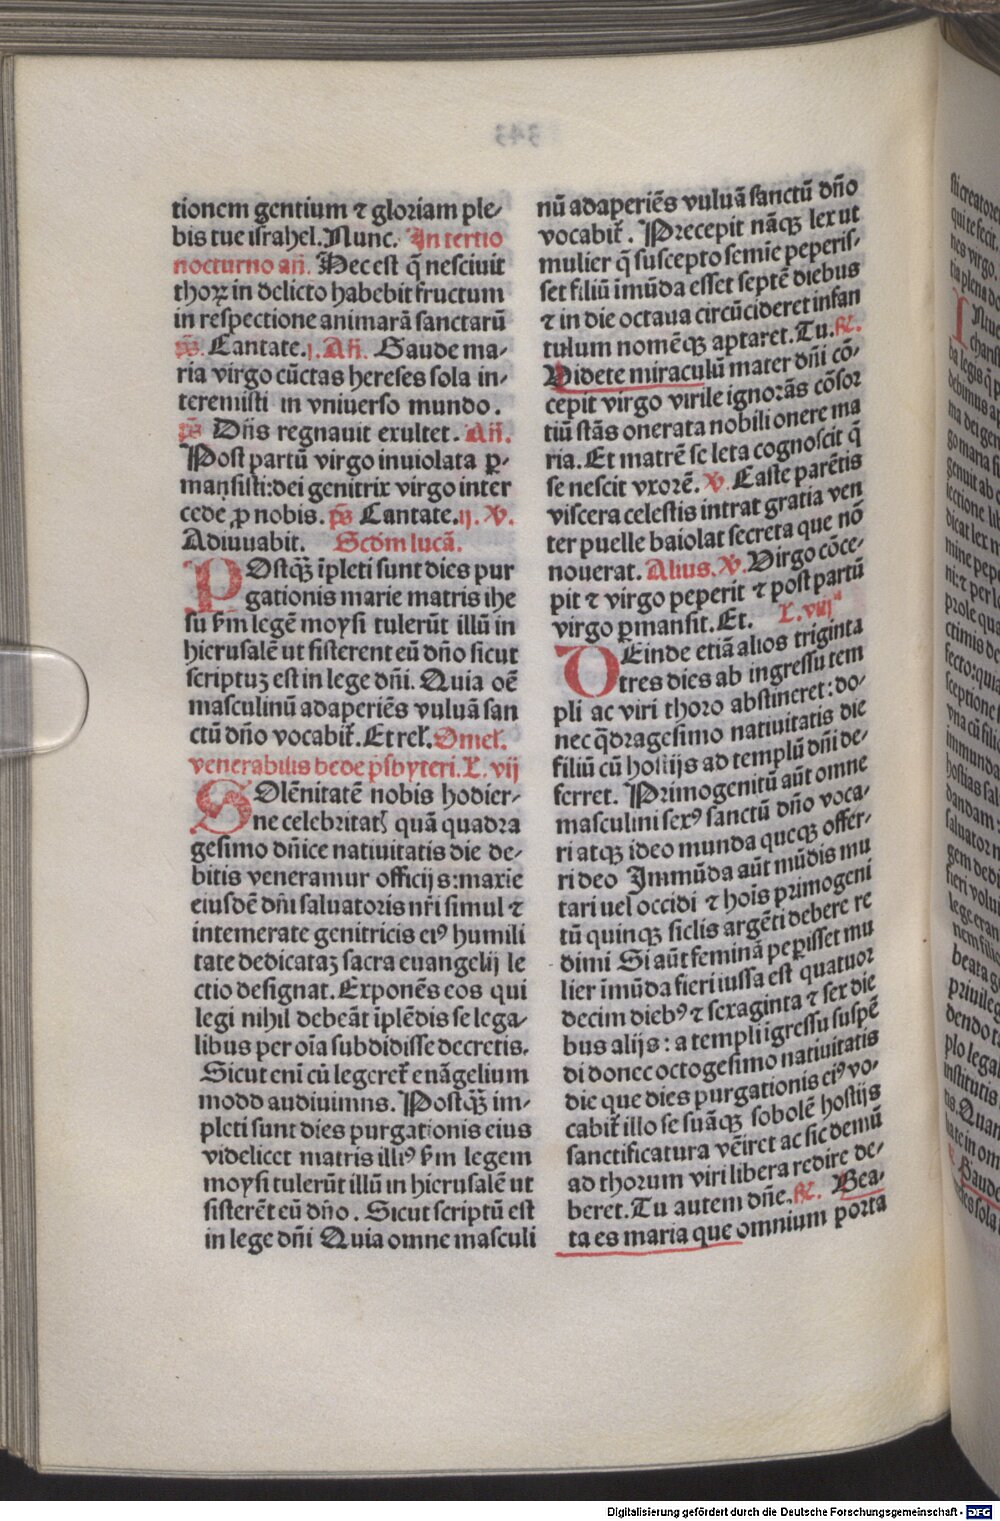 tionem gentium ⁊ gloriam ple-
bis tue israhel. Nunc. In tertio
nocturno añ. Hec est q̃ nesciuit
thoꝝ in delicto habebit fructum
in respectione animarũ sanctarũ
p̃s. Cantate. j. Añ. Gaude ma-
ria virgo cũctas hereses sola in-
teremisti in vniuerso mundo.
p̃s Dñs regnauit exultet. Añ.
Post partũ virgo inuiolata ꝑ-
mansisti: dei genitrix virgo inter
cede ꝓ nobis. p̃s Cantate. ij. ℣.
Adiuuabit. Scd̃m lucã.
POstq̃ꝫ ĩpleti sunt dies pur
gationis marie matris ihe
su ẜm legẽ moysi tulerũt illũ in
hierusalẽ ut sisterent eũ dño sicut
scriptuꝫ est in lege dñi. Quia oẽ
masculinũ adaperiẽs vuluã san
ctũ dño vocabiť. Et reł. Omeł.
venerabilis bede p̃sbyteri. L. vij
SOlẽnitatẽ nobis hodier-
ne celebritatꝭ quã quadra
gesimo dñice natiuitatis die de-
bitis veneramur officijs: maxĩe
eiusdẽ dñi saluatoris nr̃i simul ⁊
intemerate genitricis eiꝰ humili
tate dedicataꝫ sacra euangelij le
ctio designat. Exponẽs eos qui
legi nihil debeãt ĩplẽdis se lega-
libus per oĩa subdidisse decretis.
Sicut eni cũ legereť enãgelium
modo audiuimns. Postq̃ꝫ im-
pleti sunt dies purgationis eius
videlicet matris illiꝰ ẜm legem
moysi tulerũt illũ in hierusalẽ ut
sisterẽt eũ dño. Sicut scriptũ est
in lege dñi Quia omne masculi
nũ adaperiẽs vuluã sanctũ dño
vocabiť. Precepit nãqꝫ lex ut
mulier q̃ suscepto semie peperis-
set filiũ ĩmũda esset septẽ diebus
⁊ in die octaua circũcideret infan
tulum nomẽqꝫ aptaret. Tu. ℟.
Videte miraculũ mater dñi cõ-
cepit virgo virile ignorãs cõsor
tiũ stãs onerata nobili onere ma
ria. Et matrẽ se leta cognoscit q̃
se nescit vxorẽ. ℣. Caste parẽtis
viscera celestis intrat gratia ven
ter puelle baiolat secreta que nõ
nouerat. Alius. ℣. Virgo cõce-
pit ⁊ virgo peperit ⁊ post partũ
virgo ꝑmansit. Et. L. viij
DEinde etiã alios triginta
tres dies ab ingressu tem
pli ac viri thoro abstineret: do-
nec q̃dragesimo natiuitatis die
filiũ cũ hostijs ad templũ dñi de-
ferret. Primogenitũ aũt omne
masculini sexꝰ sanctũ dño voca-
ri atqꝫ ideo munda queqꝫ offer-
ri deo Immũda aũt mũdis mu
tari uel occidi ⁊ hoĩs primogeni
tũ quinqꝫ siclis argẽti debere re
dimi Si aũt feminã peꝑisset mu
lier ĩmũda fieri iussa est quatuor
decim diebꝰ ⁊ sexaginta ⁊ sex die
bus alijs: a templi igressu suspẽ
di donec octogesimo natiuitatis
die que dies purgationis eiꝰ vo-
cabiť illo se suãqꝫ sobolẽ hostijs
sanctificatura vẽiret ac sic demũ
ad thorum viri libera redire de-
beret. Tu autem dñe. ℟. Bea-
ta es maria que omnium porta